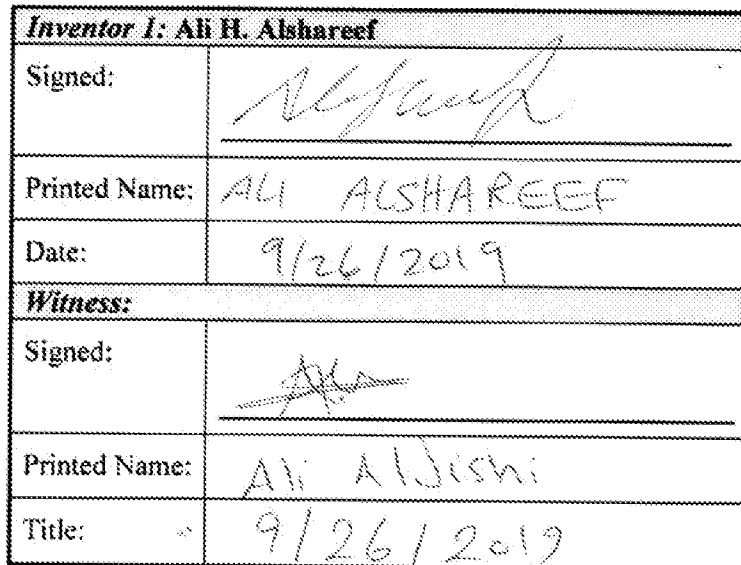 Inventor 1: Ali H. Alshareef
Signed:
Printed Name: ALI ALSHAREEF
Date: 9/26/2019
Witness:
Signed:
Printed Name: Ali AlJishi
Title: 9/26/2019